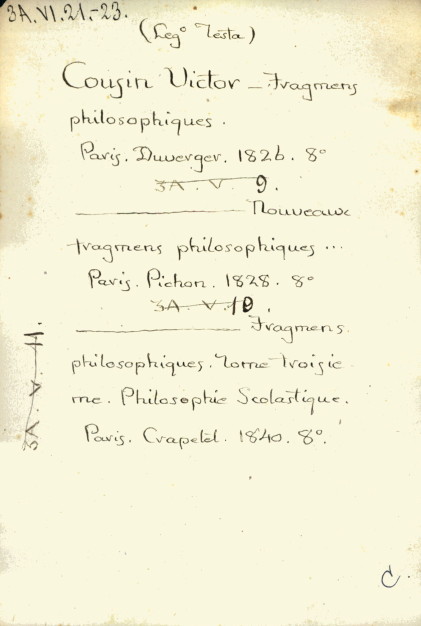 3A.VI.21.-23.
(Leg° Testa)
Cousin Victor - Fragmens
philosophiques.
Paris. Duverger. 1826. 8°
3A. V. 9.
Nouveaux
fragmens philosophiques ...
Paris. Pichon. 1828. 8°
3A. V. 10.
Fragmens
philosophiques. Tome troisie
me. Philosophie Scolastique.
Paris. Crapelet. 1840. 8°.
3A. V. 11.
C.